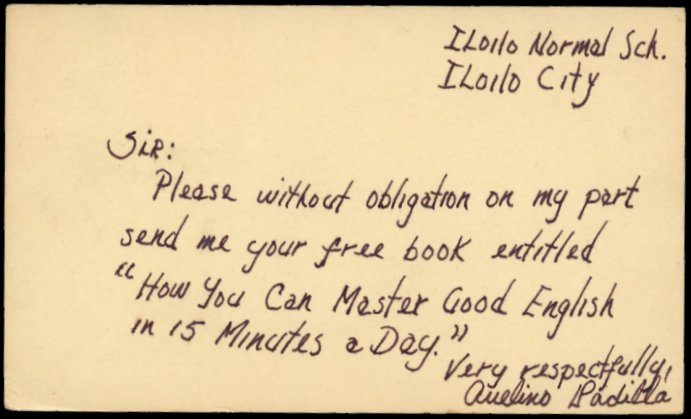 Iloilo Normal Sch.
Iloilo City
Sir:
Please without obligation on my part
send me your free book entitled
"How You Can Master Good English
in 15 Minutes a Day."
Very respectfully,
Avelino Padilla